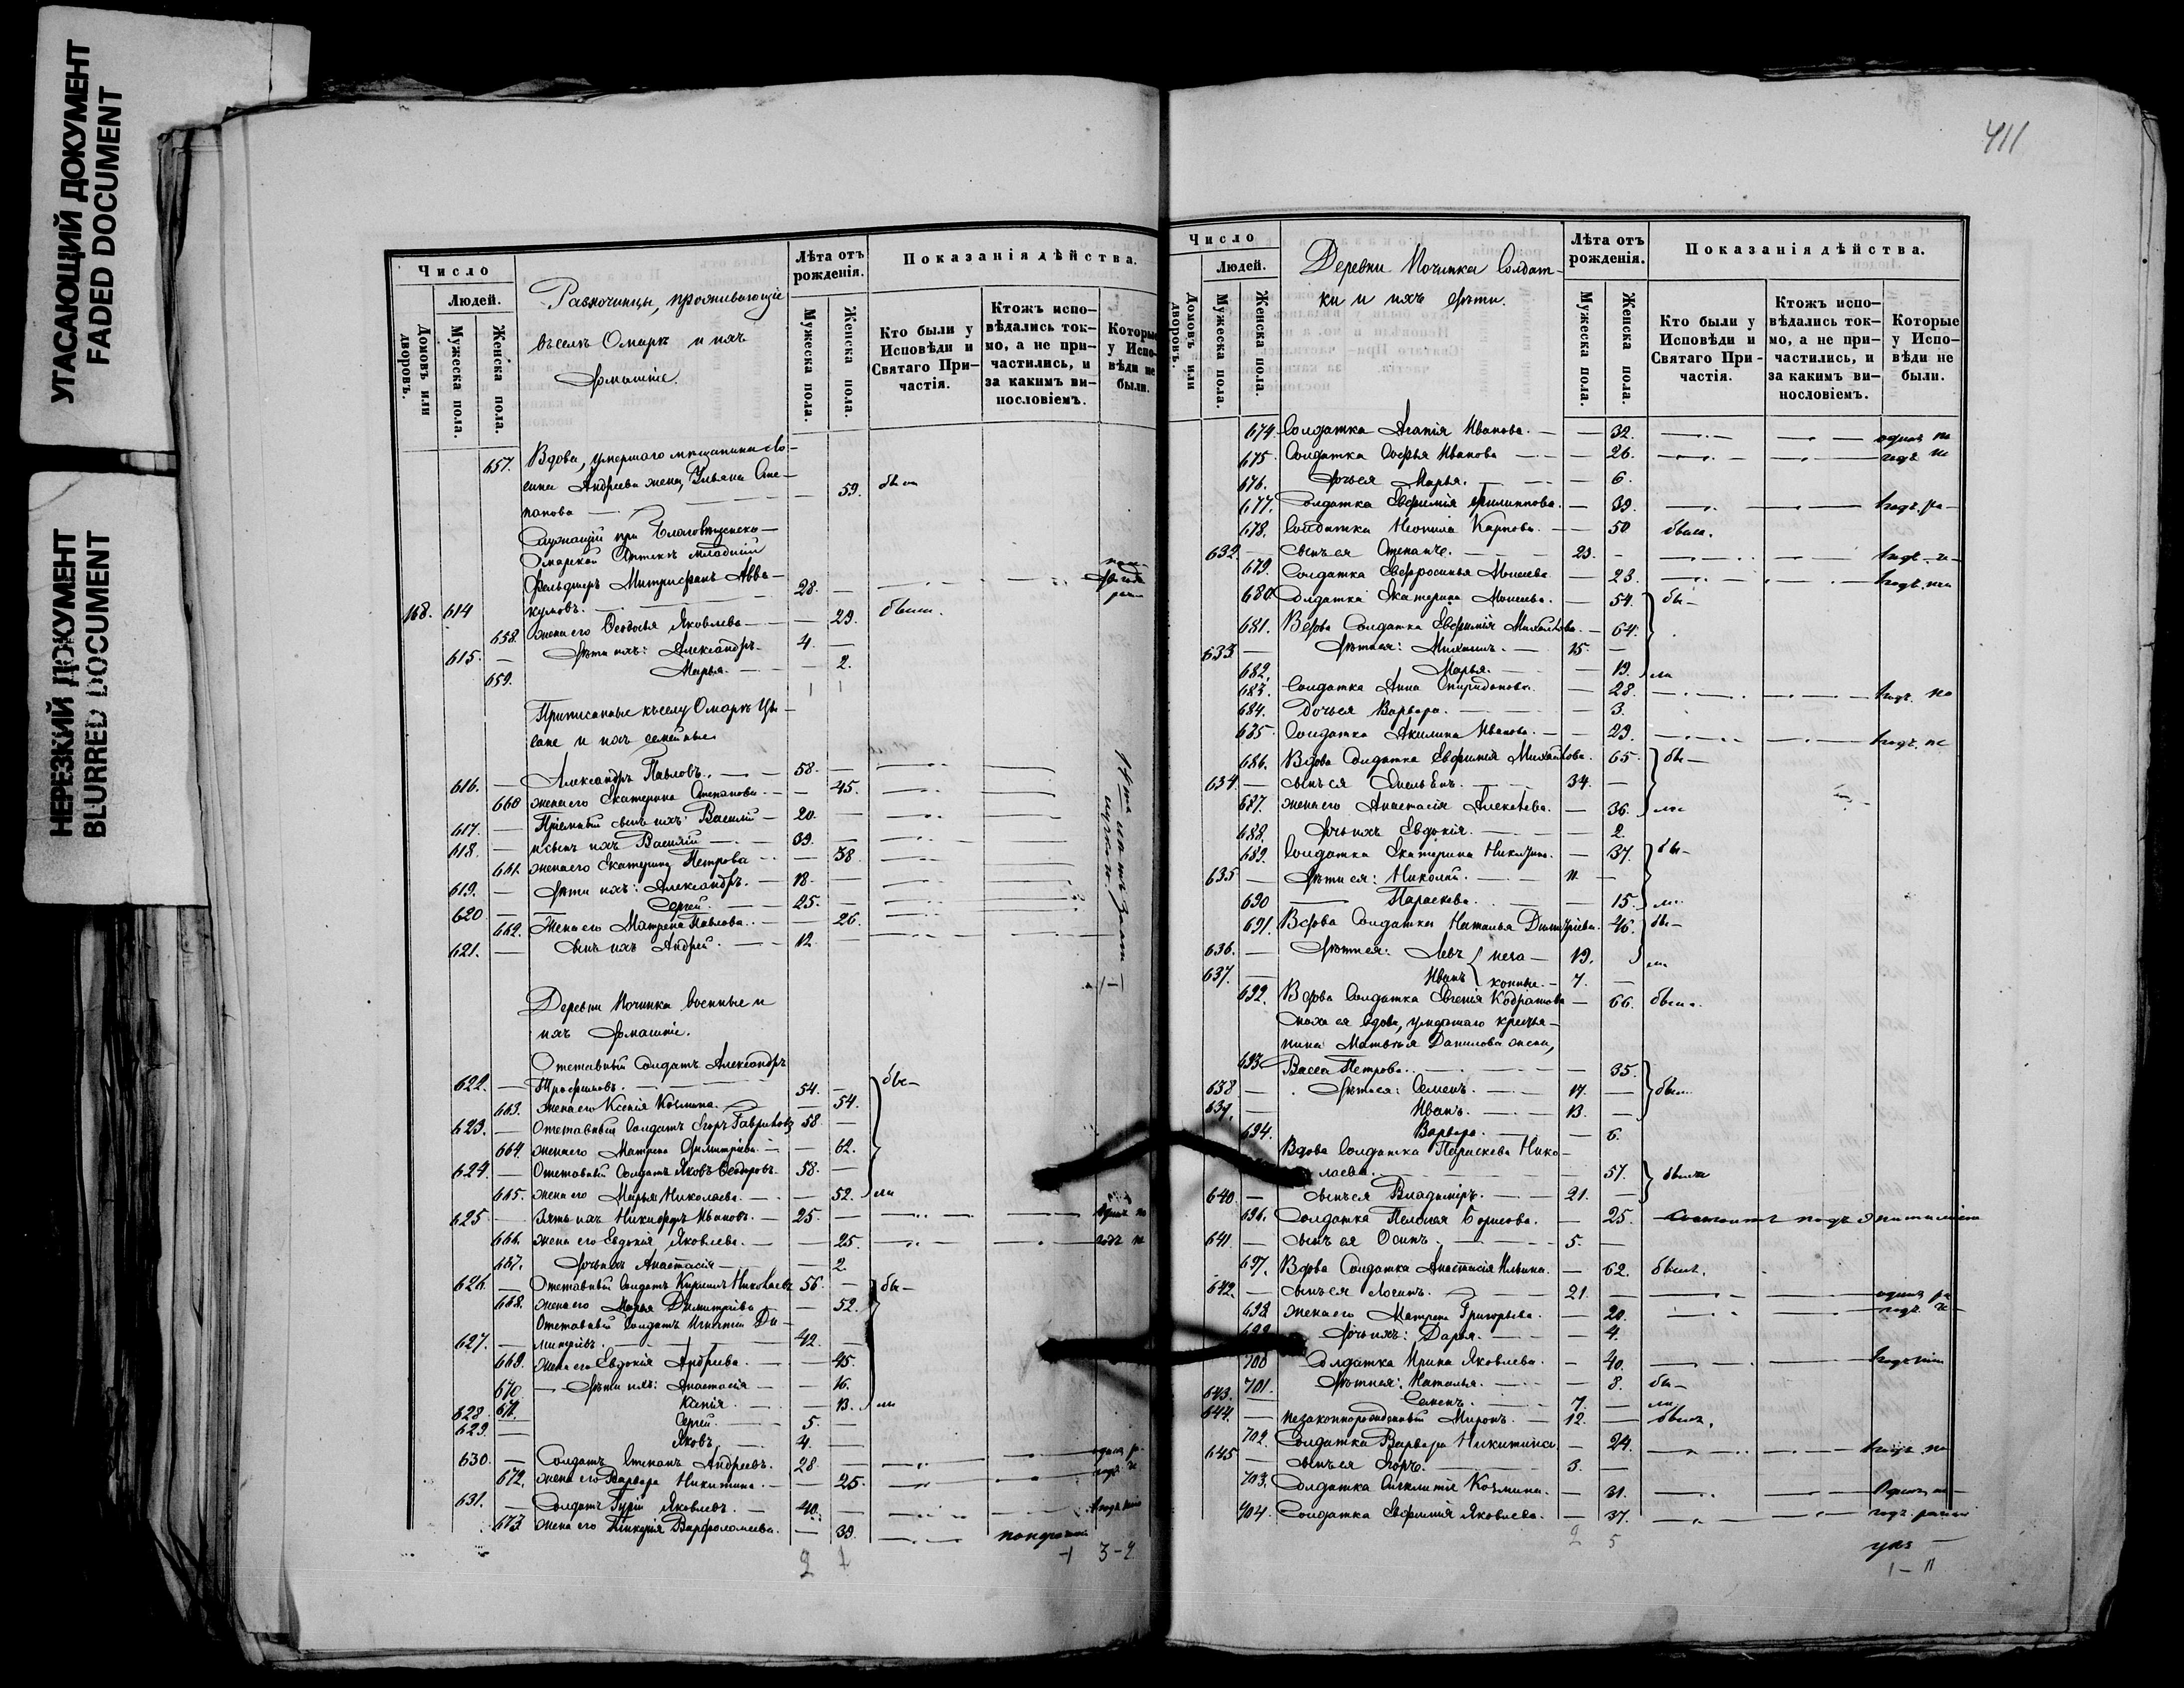 УГАСАЮЩИЙ ДОКУМЕНТ
FADED DOCUMENT
НЕРЕЗКИЙ ДОКУМЕНТ
BLURRED DOCUMENT
Число
Людей.
Домовъ или дворовъ.
Мужеска пола.
Женска пола.
Разночинцы, проживающіе
въ селѣ Омарѣ и ихъ
домашніе.
Лѣта отъ рожденія.
Мужеска пола.
Женска пола.
Показанія дѣйства.
Кто были у Исповѣди и Святаго При-частія.
Ктожъ испо-вѣдались ток-мо, а не при-частились, и за какимъ ви-нословіемъ.
Которые у Испо-вѣди не были.
657. Вдова, умершаго мѣщанина
Андреева жена, Ульяна Сте-
панова — 59.
Служащій при Благовѣщенско-
Омарской Аптекѣ младшій
фельдшеръ Митрофанъ Авва-
168. 614 кумовъ. 28. —
658. жена его Ѳеодосья Яковлева — — 29. были.
615. — Дѣти ихъ: Александръ. 4. —
659. Марья. — 2.
Приписанные къ селу Омарѣ
и ихъ семейные
616. — Александръ Павловъ. 58. —
660 жена его Екатерина Степанова — 45.
617. — Пріемный сынъ ихъ Василій 20. —
618. — и сынъ ихъ Василій 39. —
661. жена его Екатерина Петрова — 38.
619. — Дѣти ихъ: Александръ. 18. —
620 — Сергей. 25. —
662. Жена его Матрена Павлова. — 26.
621. — Сынъ ихъ Андрей. 12.
Деревни Починка Военные и
ихъ домашніе.
Отставный Солдатъ Александръ
622. — Трофимовъ. 54. — бы-
663. Жена его Ксенія Козмина. — 54.
623. — Отставный Солдатъ Егоръ Гавриловъ 58. —
664. жена его Матрена Димитріева. — 62.
624. — Отставный Солдатъ Яковъ Ѳеодоровъ. 58. —
665. жена его Марья Николаева. — 52. ли
625 — Зять ихъ Никифоръ Ивановъ. 25. —
666. жена его Евдокія Яковлева. — 25.
667. Дочь ихъ Анастасія — 2
626. — Отставный Солдатъ Кириллъ Николаевъ 56. — бы-
668. жена его Марья Димитріева — 52.
Отставный Солдатъ Игнатій Ди-
627. — митріевъ. 42. —
669. жена его Евдокія Андреева. — 45.
670 — Дѣти ихъ: Анастасія — 16.
671. — 13. ли
628. — Сергей. 5. —
629. — Яковъ 4. —
630. — Солдатъ Степанъ Андреевъ. 28 —
672. жена его Варвара Никитина. — 25.
631. — Солдатъ Гурій Яковлевъ. 40. —
673. жена его Гликерія Варфоломеева. — 39.
2 1 -1 3-2
411
Число
Людей.
Домовъ или дворовъ.
Мужеска пола.
Женска пола.
Деревни Починка Солдат-
ки и ихъ дѣти.
Лѣта отъ рожденія.
Мужеска пола.
Женска пола.
Показанія дѣйства.
Кто были у Исповѣди и Святаго При-частія.
Ктожъ испо-вѣдались ток-мо, а не при-частились, и за какимъ ви-нословіемъ.
Которые у Испо-вѣди не были.
674. Солдатка Агапія Иванова. — 32.
675. Солдатка Софья Иванова — 26.
676. Дочь ея Марья. — 6.
677. Солдатка Евфимія Филиппова. — 39.
678. Солдатка Неонила Карпова. — 50 была.
632. — Сынъ ея Степанъ. 23. —
679. Солдатка Евфросинья Моисеева. — 23.
680 Солдатка Екатерина Моисеева. — 54. бы-
681. Вдова Солдатка Евфимія Михайлова. — 64.
633 — Дѣти ея: Михаилъ. 15. —
682. Марья. — 19. ли
683. Солдатка Анна Спиридонова. — 28.
684. Дочь ея Варвара. — 3.
685 Солдатка Акилина Иванова. — 29.
686. Вдова Солдатка Евфимія Михайлова. 65. бы-
634. — Сынъ ея 34. —
687. жена его Анастасія Алексѣева. — 36. ли
688. Дочь ихъ Евдокія. — 2.
689. Солдатка Екатерина Никитина. — 37. бы-
635 — Дѣти ея: Николай. 11. —
690 Параскева. 15. ли
691. Вдова Солдатка Наталья Димитріева. 46. бы-
636. — Дѣти ея: Левъ неза- 19. ли
637. — Иванъ конные. 7. —
692. Вдова Солдатка Евгенія Кодратова — 66. была.
Сноха ея вдова, умершаго кресья-
нина Матвѣя Данилова жена,
693. Васса Петрова. — 35.
638 — Дѣти ея: Семенъ. 17. — были
639. — Иванъ. 13. —
694. Варвара. — 6.
Вдова Солдатка Параскева Нико-
лаева. — 57. были
640. — Сынъ ея Владиміръ. 21. —
696. Солдатка Пелагея Борисова. — 25. Состоитъ подъ эпитиміею
641. — Сынъ ея Осипъ. 5. —
697. Вдова Солдатка Анастасія Ильина. — 62. была.
642. — Сынъ ея Логинъ. 21. —
698. Жена его Матрена Григорьева. — 20.
699 Дочь ихъ: Дарья. — 4.
700 Солдатка Ирина Яковлева. — 40.
701. Дѣти ея: Наталья. — 8. бы-
643. — Семенъ. 7. — ли
644. — незаконнорожденный Миронъ. 12. — былъ.
702. Солдатка Варвара Никитина — 24.
645 — Сынъ ея Егоръ. 3. —
703. Солдатка Козмина. — 31.
704. Солдатка Евфимія Яковлева. — 37.
2 5
1 - 11